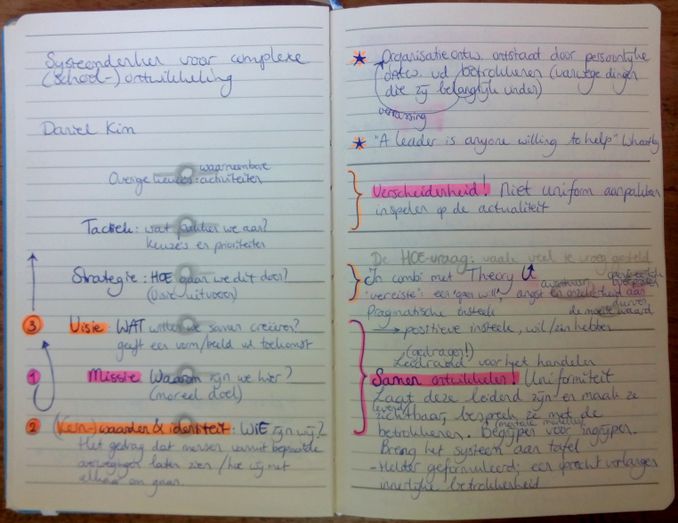 Systeemdenken voor complexe
(school-) ontwikkeling
Daniel Kim
waarneembare
Overige keuzes: activiteiten
Tactiek: wat pakken we aan?
keuzes en prioriteiten
Strategie: HOE gaan we dit doen?
(visie uitvoeren)
3 Visie: WAT willen we samen creëren?
geeft een vorm/beeld vd toekomst
1 Missie Waarom zijn we hier?
(moreel doel)
2 (kern-)waarden & identiteit: WIE zijn wij?
Het gedrag dat mensen vanuit bepaalde
overwegingen laten zien / hoe wij met
elkaar om gaan.
★ Organisatieontw. ontstaat door persoonlijke
ontw. vd betrokkenen (vanwege dingen
die zij belangrijk vinden)
verrassing
★ "A leader is anyone willing to help" Wheatley
Verscheidenheid! Niet uniform aanpakken
inspelen op de actualiteit
De HOE-vraag: vaak veel te vroeg gesteld
In combi met Theory U
"vereiste": een "open will", angst en onzekerheid aan
durven
Pragmatische insteek de moeite waard
→ positieve insteek, wil/zin hebben
(gedragen!)
Leidraad voor het handelen
Samen ontwikkelen! Uniformiteit
Laat deze leidend zijn en maak ze
(levend)
zichtbaar, bespreek ze met de
betrokkenen. Begrijpen voor ingrijpen.
Breng het systeem aan tafel
- Helder geformuleerd; een oprecht verlangen
innerlijke betrokkenheid